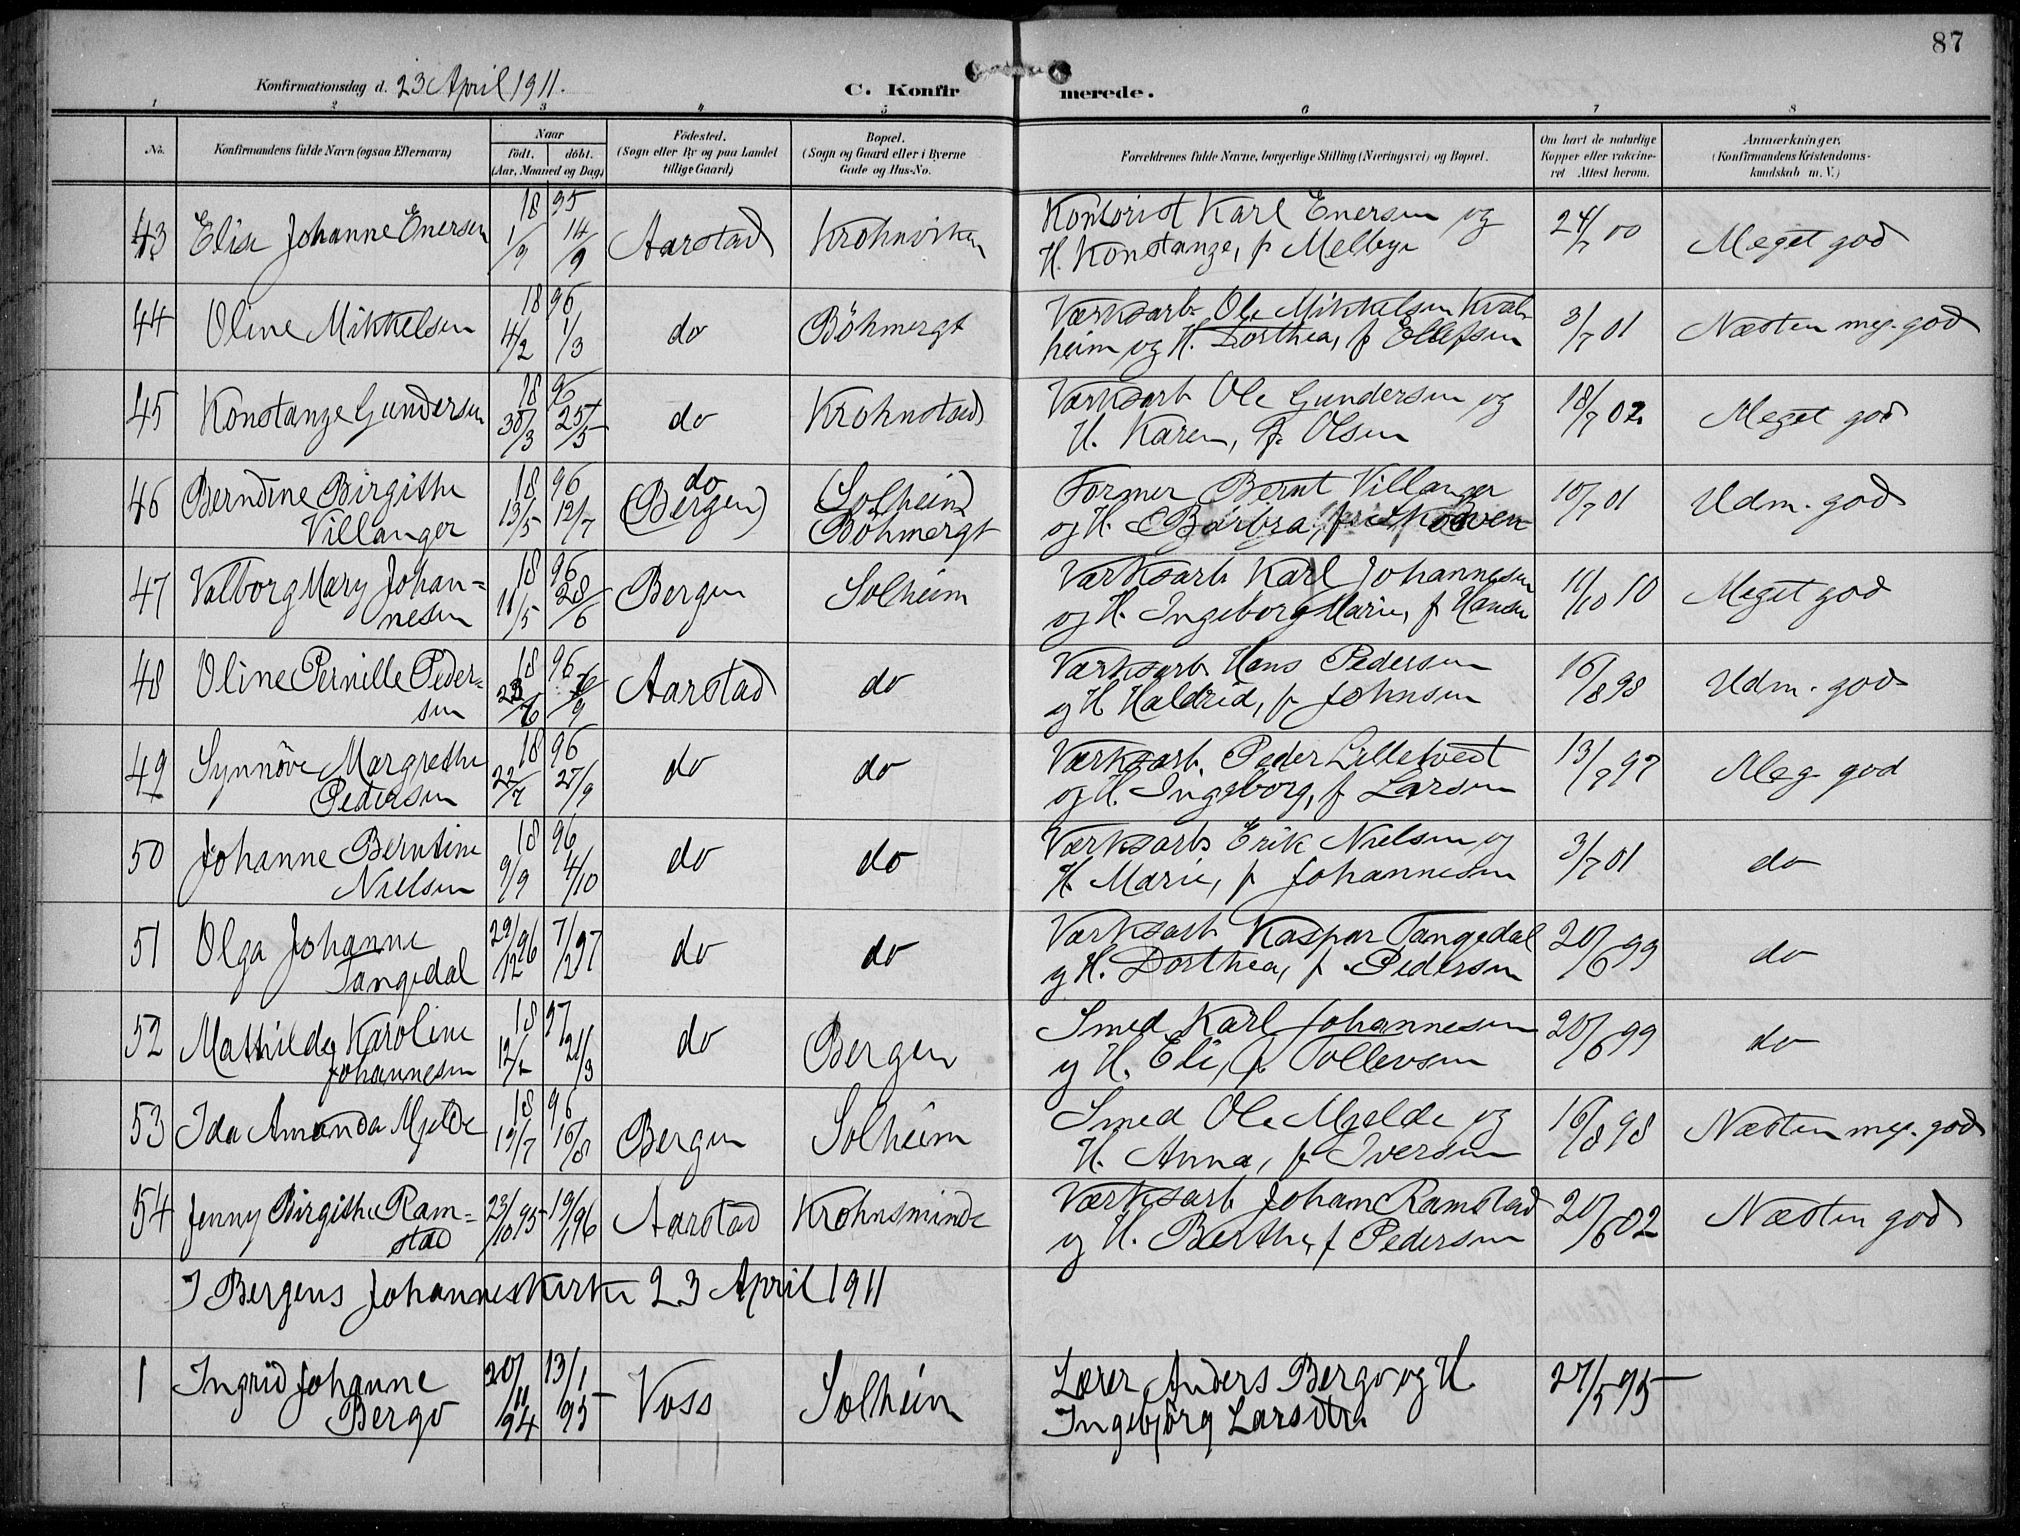 87
Konfirmationsdag d. 23 April 1911.
C. Konfirmerede.
1 2 3 4 5 6 7 8
No.
Konfirmandens fulde Navn (ogsaa Efternavn)
Naar
födt. döbt.
(Aar, Maaned og Dag)
Födested.
(Sogn eller By og paa Landet
tillige Gaard)
Bopæl.
(Sogn og Gaard eller i Byerne
Gade og Hus-No.
Forældrenes fulde Navne, borgerlige Stilling (Næringsvei) og Bopæl.
Om havt de naturlige
Kopper eller vakcine-
ret Attest herom.
Anmærkninger,
(Konfirmandens Kristendoms-
kundskab m. V.)
18 95
43 Elise Johanne Enersen 1/9 14/9 Aarstad Krohnviken
Kontorist Karl Enersen og
H. Konstanze, f Melbye
24/7 00 Meget god
18 96
44 Oline Mikkelsen 4/2 1/3 do Böhmergt
Værksarb Ole Mikkelsen Kval-
heim og H. Dorthea, f Ellefsen
3/7 01 Næsten meg. god
18 96
45 Konstanze Gundersen 30/3 25/5 do Krohnstad
Værksarb Ole Gundersen og
H. Karen, f. Olsen
18/7 02 Meget god
18 96
46 Berndine Birgithe
Villanger
13/5 12/7 do
(Bergen) (Solheim)
Böhmergt
Former Bernt Villanger
og H. Barbra, f
10/7 01 Udm. god
18 96
47 Valborg Mary Johan=
nesen
11/5 28/6 Bergen Solheim
Værksarb Karl Johannesen
og H. Ingeborg Marie, f Hansen
11/10 10 Meget god
18 96
48 Oline Pernille Peder=
sen
23/6 6/9 Aarstad do
Værksarb Hans Pedersen
og H Haldrid, f Johnsen
16/8 98 Udm. god
18 96
49 Synnöve Margrethe
Pedersen
22/7 27/9 do do
Værksarb. Peder Lilletvedt
og H. Ingeborg, f Larsen
13/7 97 Meg god
18 96
50 Johanne Berntine
Nielsen
9/9 4/10 do do
Værksarb Erik Nielsen og
H Marie, f Johannesen
3/7 01 do
51 Olga Johanne
Tangedal
29/12 96 7/2 97 do do
Værksarb Kaspar Tangedal
og H. Dorthea, f. Pedersen
20/6 99 do
18 97
52 Mathilde Karoline
Johannesen
12/2 21/3 do Bergen
Smed Karl Johannesen
og H. Eli, f. Tollevsen
20/6 99 do
18 96
53 Ida Amanda Mjelde 19/7 16/8 Bergen Solheim
Smed Ole Mjelde og
H. Anna, f Iversen
16/8 98 Næsten meg. god
54 Jenny Birgithe Ram=
stad
23/10 95 19/1 96 Aarstad Krohnsminde
Værksarb Johan Ramstad
og H. Berthe, f Pedersen
20/6 02 Næsten god
I Bergens Johanneskirke 23 April 1911
1 Ingrid Johanne
Bergo
20/11 94 13/1 95 Voss Solheim
Lærer Anders Bergo og H
Ingebjörg Larsdtr
27/5 95 —